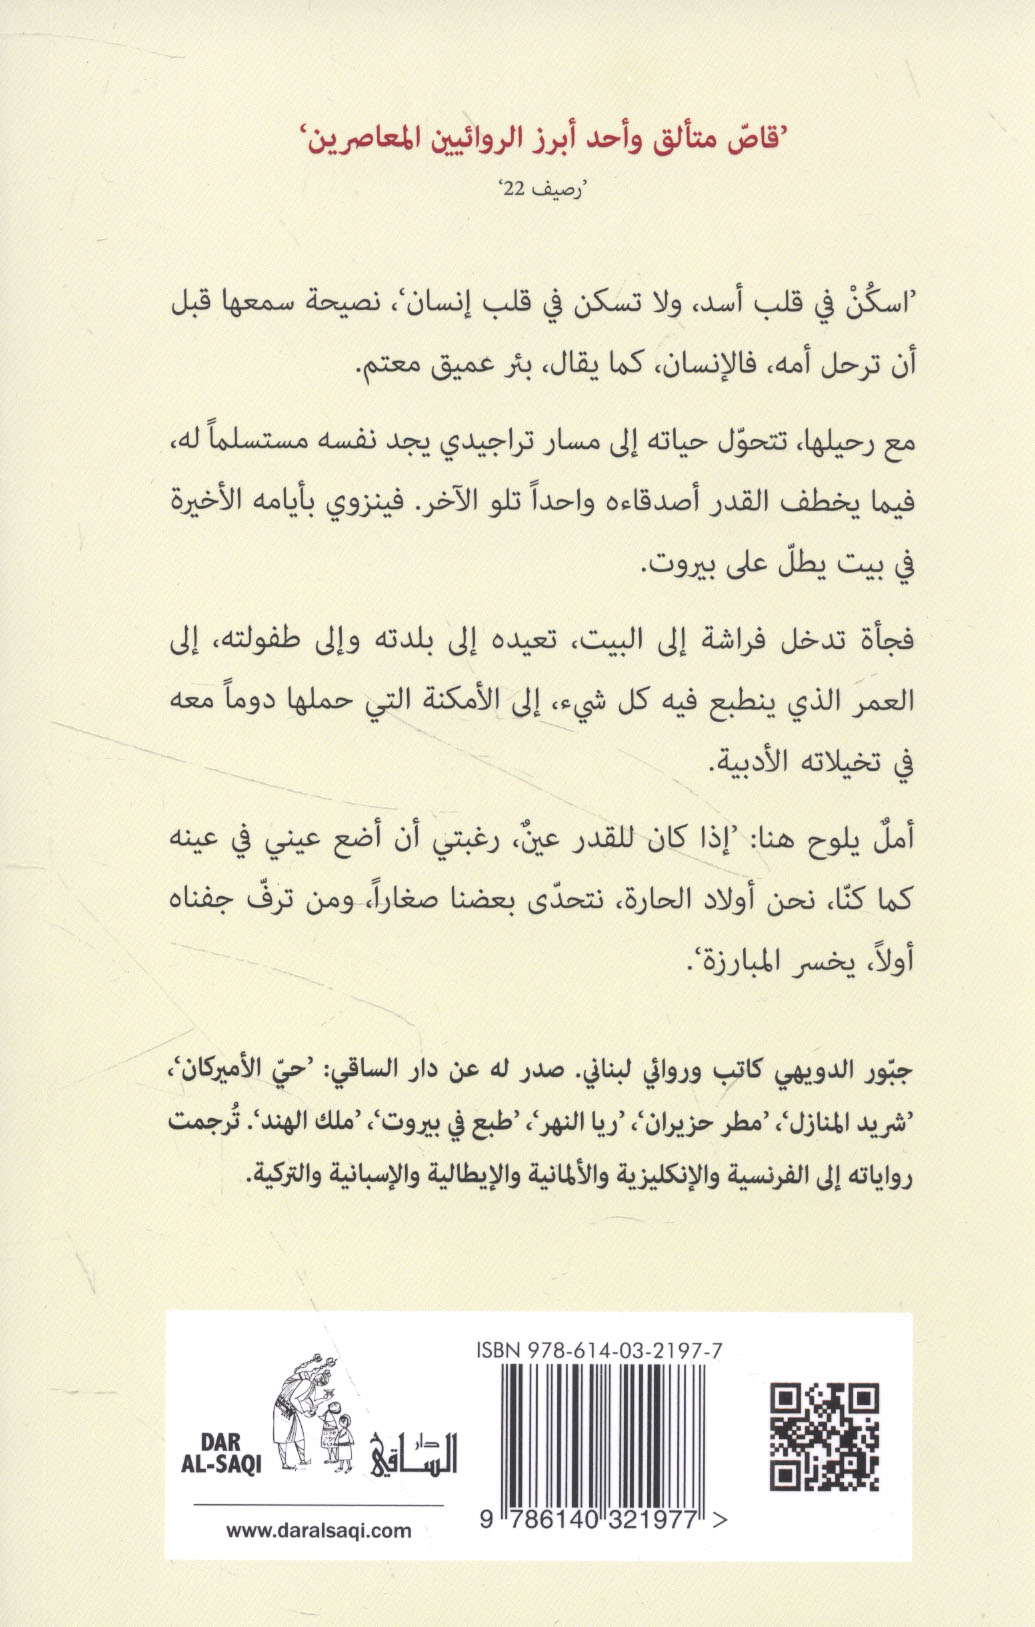 ’قاصّ متألق وأحد أبرز الروائيين المعاصرين‘
’رصيف 22‘
’اسكُنْ في قلب أسد، ولا تسكن في قلب إنسان‘، نصيحة سمعها قبل
أن ترحل أمه، فالإنسان، كما يقال، بئر عميق معتم.
مع رحيلها، تتحوّل حياته إلى مسار تراجيدي يجد نفسه مستسلماً له،
فيما يخطف القدر أصدقاءه واحداً تلو الآخر. فينزوي بأيامه الأخيرة
في بيت يطلّ على بيروت.
فجأة تدخل فراشة إلى البيت، تعيده إلى بلدته وإلى طفولته، إلى
العمر الذي ينطبع فيه كل شيء، إلى الأمكنة التي حملها دوماً معه
في تخيلاته الأدبية.
أملٌ يلوح هنا: ’إذا كان للقدر عينٌ، رغبتي أن أضع عيني في عينه
كما كنّا، نحن أولاد الحارة، نتحدّى بعضنا صغاراً، ومن ترفّ جفناه
أولاً، يخسر المبارزة‘.
جبّور الدويهي كاتب وروائي لبناني. صدر له عن دار الساقي: ’حيّ الأميركان‘،
’شريد المنازل‘، ’مطر حزيران‘، ’ريا النهر‘، ’طبع في بيروت‘، ’ملك الهند‘. تُرجمت
رواياته إلى الفرنسية والإنكليزية والألمانية والإيطالية والإسبانية والتركية.
ISBN 978-614-03-2197-7
9 786140 321977 >
DAR
AL-SAQI
دار
الساقي
www.daralsaqi.com